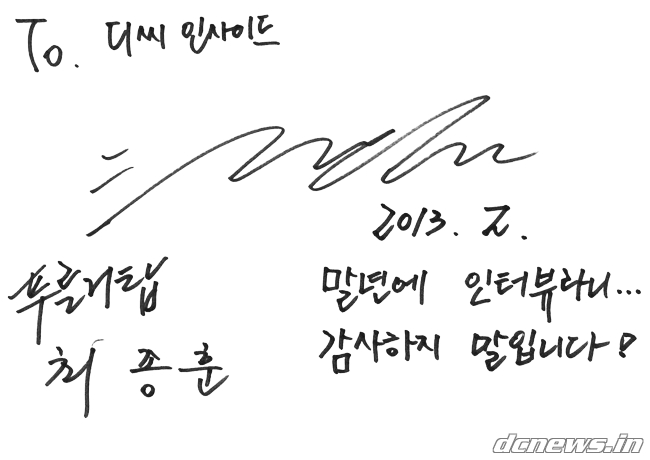 To. 디씨 인사이드
2013. 2.
푸른거탑
최종훈
말년에 인터뷰라니...
감사하지 말입니다!
dcnews.in